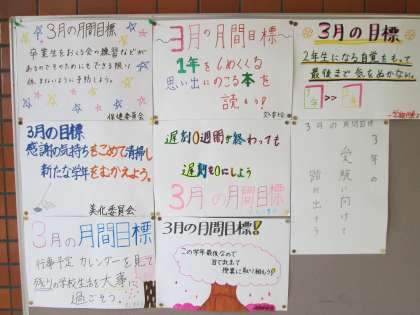 3月の月間目標
卒業生をおくる会の練習などが
あるのでそのためにもできる限り
休まないように予防しよう。
保健委員会
3月の月間目標
1年をしめくくる
思い出にのこる本を
読もう!
3月の目標
2年生になる自覚をもって
最後まで気をぬかない。
3月の目標
感謝の気持ちをこめて清掃し
新たな学年をむかえよう。
美化委員会
遅刻0週間が終わっても
遅刻を0にしよう
3月の月間目標
3月の月間目標
3年の
受験に向けて
踏み出そう
3月の月間目標
行事予定カレンダーを見て
残りの学校生活を大事に
過ごそう。
3月の月間目標!
この学年最後なので
皆でまじめに
授業に取り組もう!